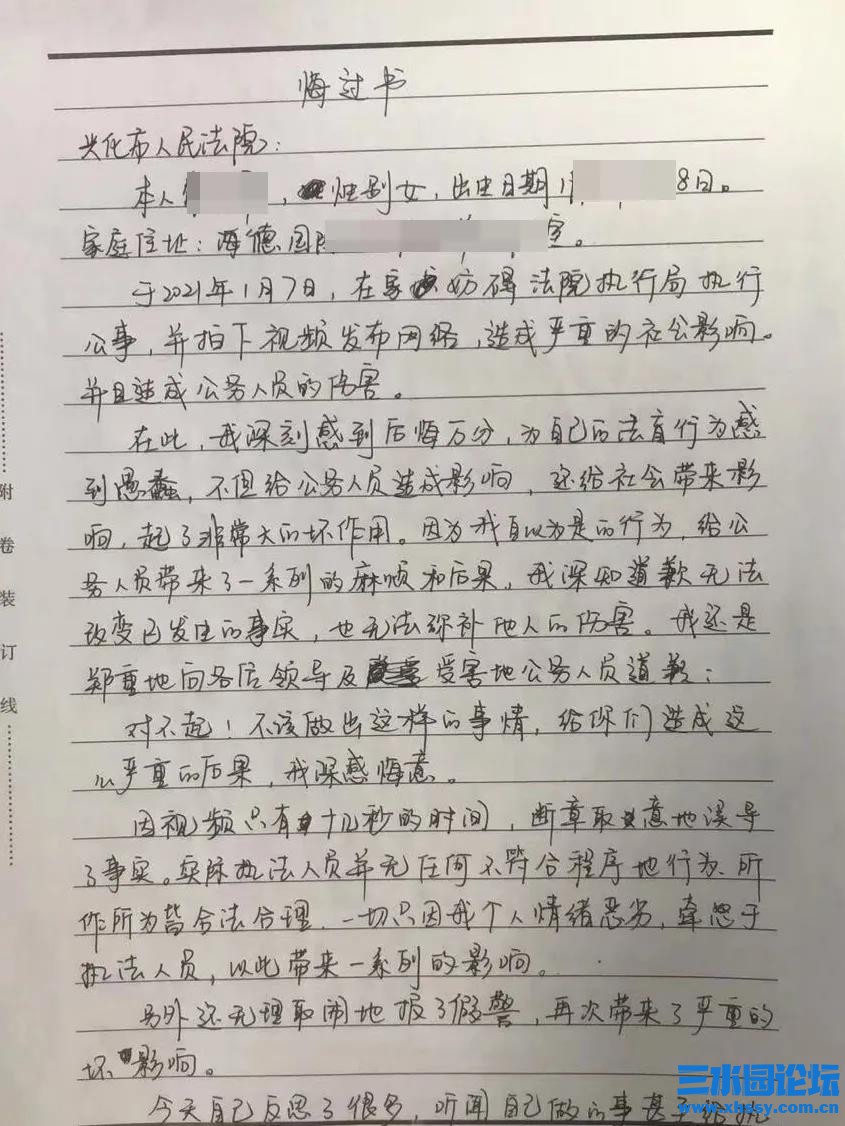 悔过书
兴化市人民法院:
本人 , 性别女, 出生日期1 8日。
家庭住址: 海德国 室。
于2021年1月7日, 在家 妨碍法院执行局执行
公事, 并拍下视频发布网络, 造成严重的社公影响。
并且造成公务人员的伤害。
在此, 我深刻感到后悔万分, 为自己的法盲行为感
到愚蠢, 不但给公务人员造成影响, 还给社会带来影
响, 起了非常大的坏作用。因为我自以为是的行为, 给公
务人员带来了一系列的麻烦和后果, 我深知道歉无法
改变已发生的事实, 也无法弥补他人的伤害。我还是
郑重地向各位领导及 受害地公务人员道歉:
对不起! 不该做出这样的事情, 给你们造成这
么严重的后果, 我深感悔意。
因视频只有十几秒的时间, 断章取意地误导
了事实。实际执法人员并无任何不符合程序地行为、所
作所为皆合法合理. 一切只因我个人情绪恶劣, 牵怒于
执法人员, 以此带来一系列的影响。
另外还无理取闹地报了假警, 再次带来了严重的
坏影响。
今天自己反思了很多, 听闻自己做的事甚至给执
附
卷
装
订
线
三水园论坛
www.xhssy.com.cn